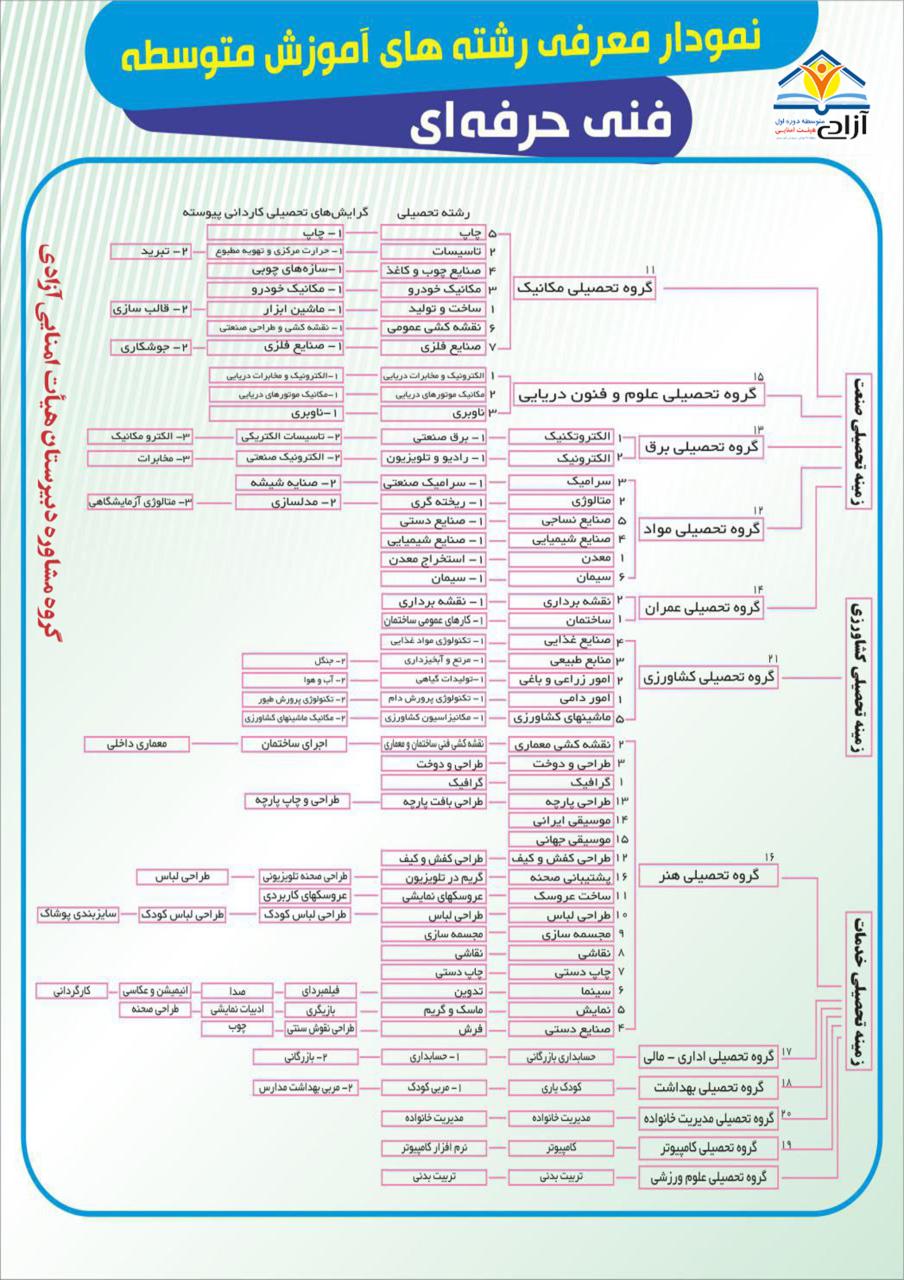 نمودار معرفی رشته های آموزش متوسطه
فنی حرفه‌ای
آزادی
متوسطه دوره اول
هیئت امنایی
رشته تحصیلی گرایش‌های تحصیلی کاردانی پیوسته
زمینه تحصیلی صنعت
۱۱
گروه تحصیلی مکانیک
۵ چاپ ۱- چاپ
۲ تاسیسات ۱- حرارت مرکزی و تهویه مطبوع ۲- تبرید
۴ صنایع چوب و کاغذ ۱-سازه‌های چوبی
۳ مکانیک خودرو ۱- مکانیک خودرو
۱ ساخت و تولید ۱- ماشین ابزار ۲- قالب سازی
۶ نقشه کشی عمومی ۱- نقشه کشی و طراحی صنعتی
۷ صنایع فلزی ۱- صنایع فلزی ۲- جوشکاری
۱۵
گروه تحصیلی علوم و فنون دریایی
۱ الکترونیک و مخابرات دریایی ۱-الکترونیک و مخابرات دریایی
۲ مکانیک موتورهای دریایی ۱-مکانیک موتورهای دریایی
۳ ناوبری ۱-ناوبری
۱۳
گروه تحصیلی برق
۱ الکتروتکنیک ۱- برق صنعتی ۲- تاسیسات الکتریکی ۳- الکترو مکانیک
۲ الکترونیک ۱- رادیو و تلویزیون ۲- الکترونیک صنعتی ۳- مخابرات
۱۲
گروه تحصیلی مواد
۳ سرامیک ۱- سرامیک صنعتی ۲- صنایه شیشه
۲ متالوژی ۱- ریخته گری ۲- مدلسازی ۳- متالوژی آزمایشگاهی
۵ صنایع نساجی ۱- صنایع دستی
۴ صنایع شیمیایی ۱- صنایع شیمیایی
۱ معدن ۱- استخراج معدن
۶ سیمان ۱- سیمان
۱۴
گروه تحصیلی عمران
۲ نقشه برداری ۱- نقشه برداری
۱ ساختمان ۱- کارهای عمومی ساختمان
زمینه تحصیلی کشاورزی
۲۱
گروه تحصیلی کشاورزی
۴ صنایع غذایی ۱- تکنولوژی مواد غذایی
۳ منابع طبیعی ۱- مرتع و آبخیزداری ۲- جنگل
۲ امور زراعی و باغی ۱-تولیدات گیاهی ۲- آب و هوا
۱ امور دامی ۱- تکنولوژی پرورش دام ۲- تکنولوژی پرورش طیور
۵ ماشینهای کشاورزی ۱- مکانیزاسیون کشاورزی ۲- مکانیک ماشینهای کشاورزی
زمینه تحصیلی خدمات
۱۶
گروه تحصیلی هنر
۲ نقشه کشی معماری نقشه کشی فنی ساختمان و معماری اجرای ساختمان معماری داخلی
۳ طراحی و دوخت طراحی و دوخت
۱ گرافیک گرافیک
۱۳ طراحی پارچه طراحی بافت پارچه طراحی و چاپ پارچه
۱۴ موسیقی ایرانی
۱۵ موسیقی جهانی
۱۲ طراحی کفش و کیف طراحی کفش و کیف
۱۶ پشتیبانی صحنه گریم در تلویزیون طراحی صحنه تلویزیونی طراحی لباس
۱۱ ساخت عروسک عروسکهای نمایشی عروسکهای کاربردی
۱۰ طراحی لباس طراحی لباس طراحی لباس کودک طراحی لباس کودک سایزبندی پوشاک
۹ مجسمه سازی مجسمه سازی
۸ نقاشی نقاشی
۷ چاپ دستی چاپ دستی
۶ سینما تدوین فیلمبردای صدا انیمیشن و عکاسی کارگردانی
۵ نمایش ماسک و گریم بازیگری ادبیات نمایشی طراحی صحنه
۴ صنایع دستی فرش طراحی نقوش سنتی چوب
۱۷ گروه تحصیلی اداری - مالی حسابداری بازرگانی ۱- حسابداری ۲- بازرگانی
۱۸ گروه تحصیلی بهداشت کودک یاری ۱- مربی کودک ۲- مربی بهداشت مدارس
۲۰ گروه تحصیلی مدیریت خانواده مدیریت خانواده مدیریت خانواده
۱۹ گروه تحصیلی کامپیوتر کامپیوتر نرم افزار کامپیوتر
گروه تحصیلی علوم ورزشی تربیت بدنی تربیت بدنی
گروه مشاوره دبیرستان هیأت امنایی آزادی